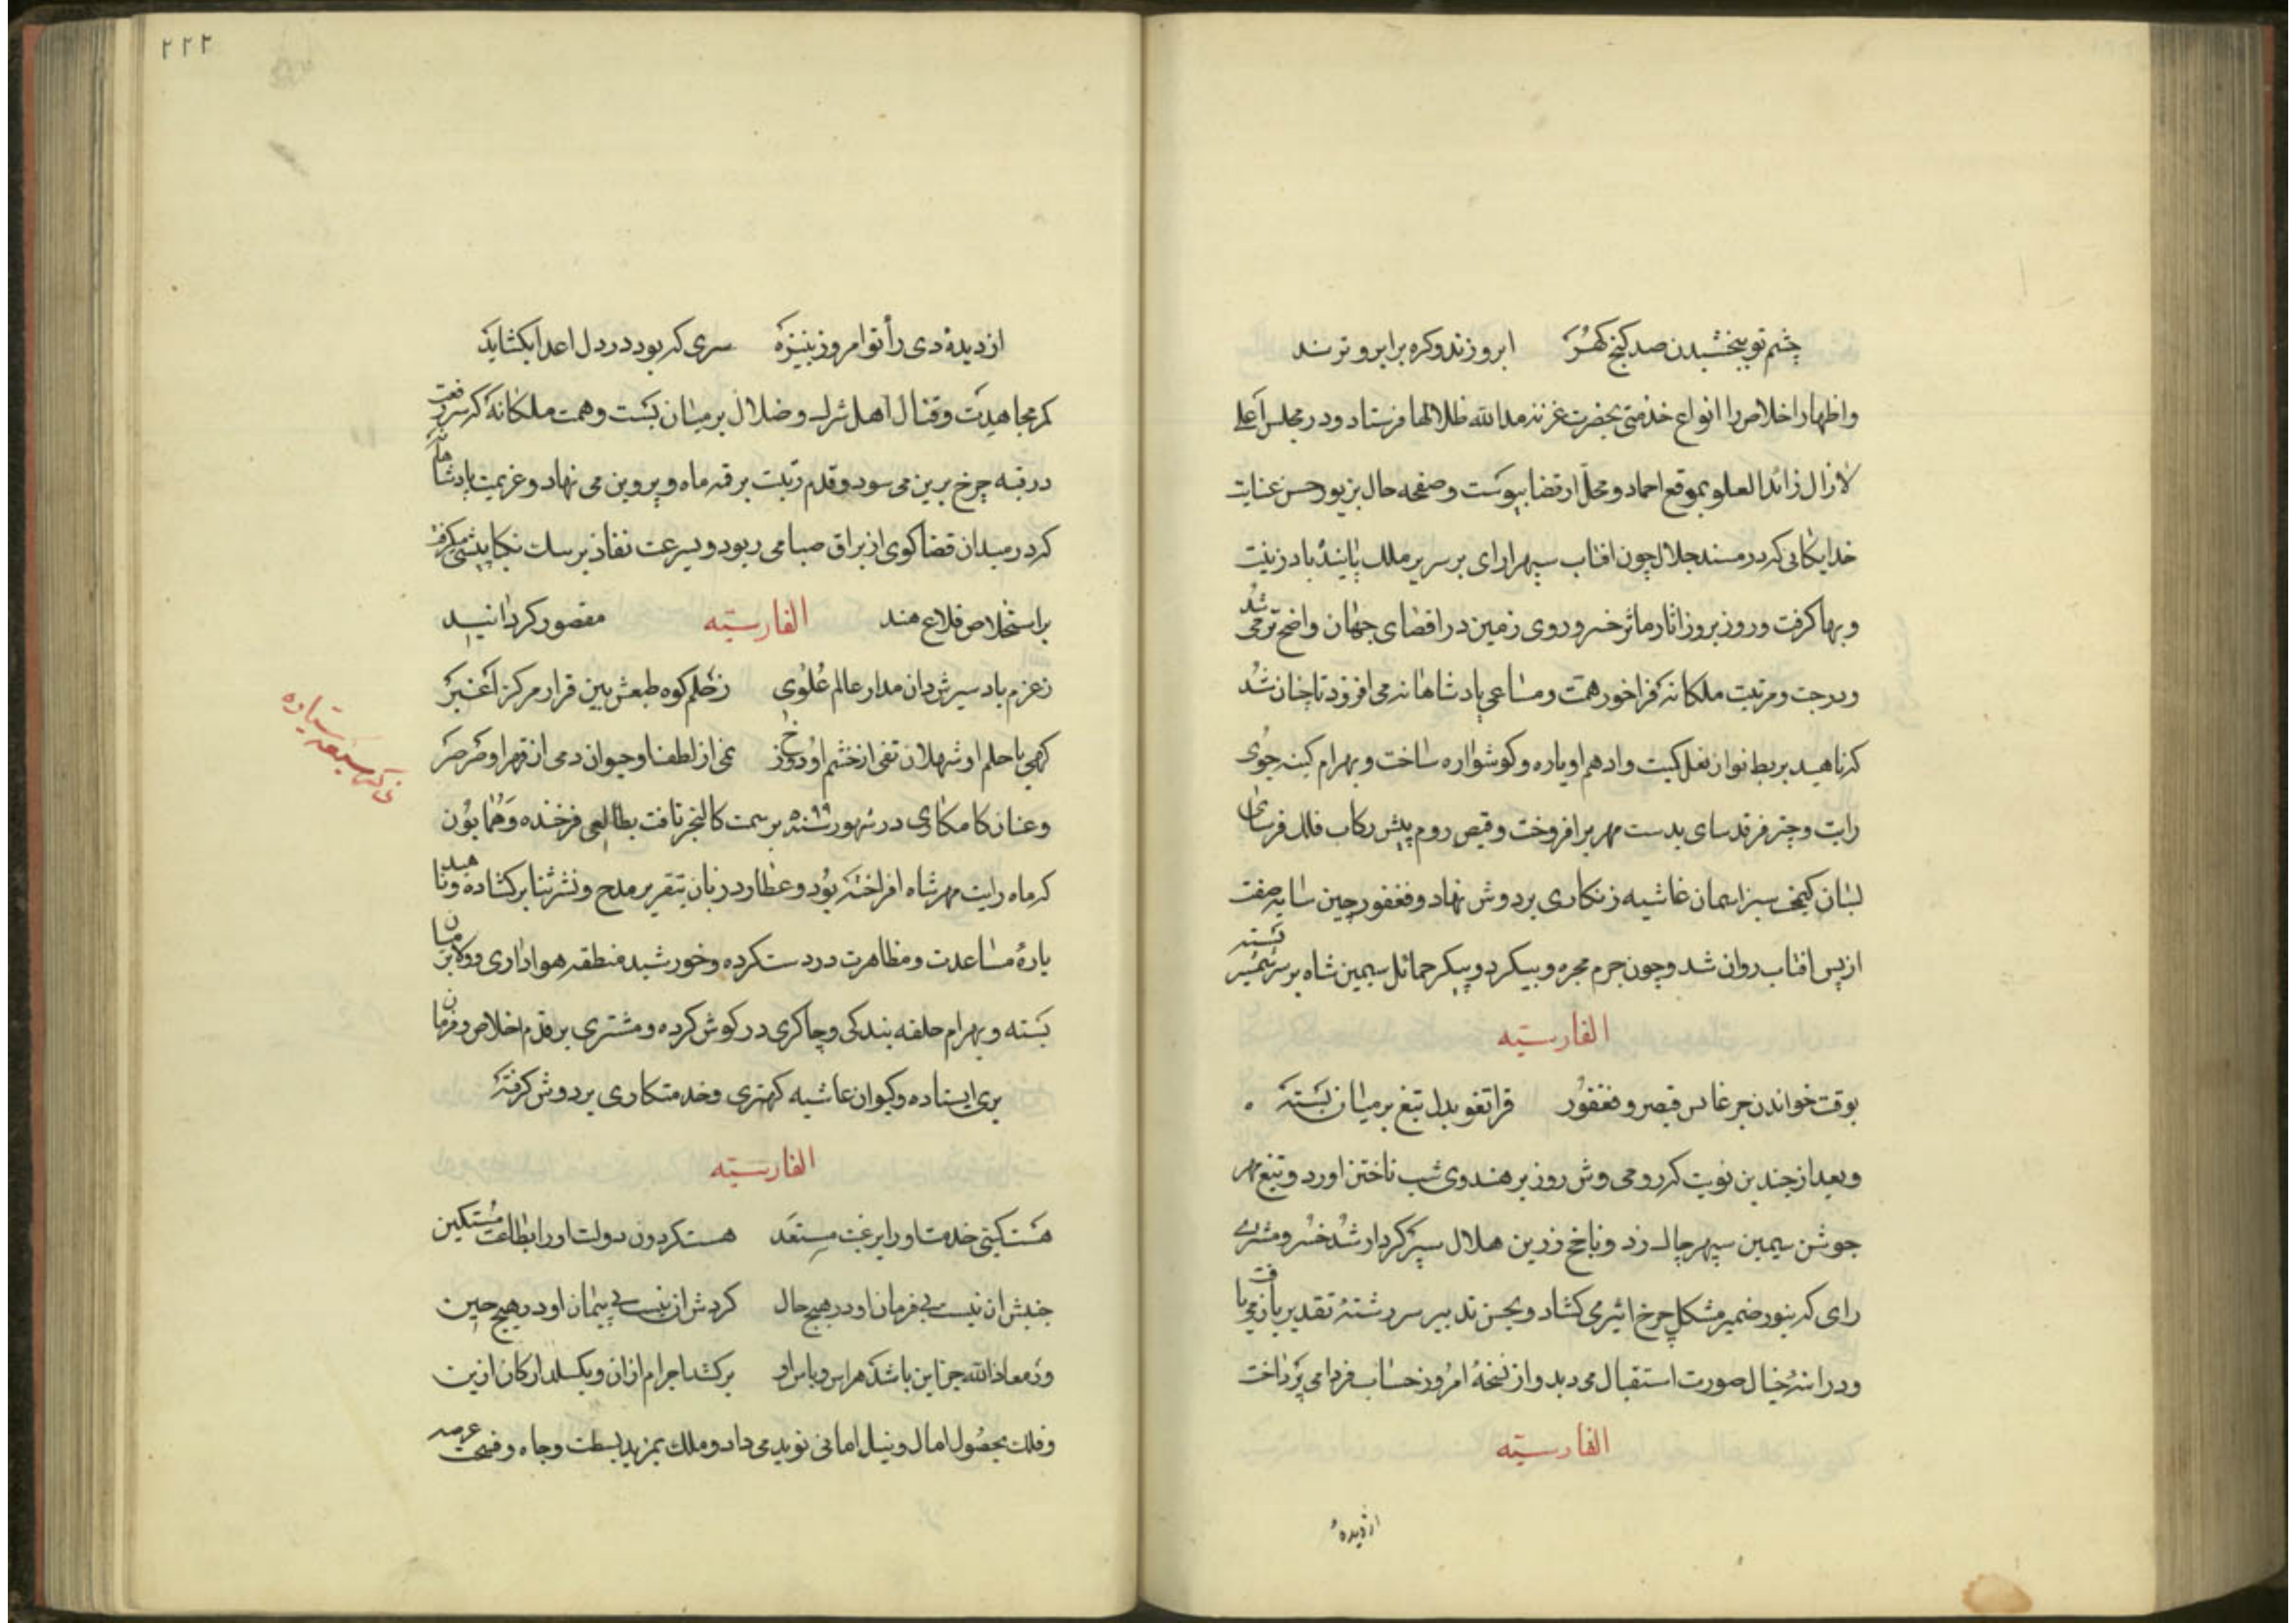 چشم تو ببخشیدن صد کنج کهر ابرو نزند وکره بر ابرو نزند
واظهار اخلاص را انواع خدمتی بحضرت غزنه مدالله ظلالها فرستاد ودر مجلس اعلی
لازال زائدا لعلو بموقع احماد ومحل ارتضا بیوست وصفحه حال بزیور حسن عنایت
خدایکانی که در مسند جلال چون افتاب سپهر ارای بر سریر ملک پاینده باد زینت
وبها کرفت وروز بروز اثار ماثر خسرو روی زمین در اقصای جهان واضح تر می شد
ودرجت ومرتبت ملکانه فراخور همت ومساعی پادشاهانه می افزود تا چنان شد
که ناهید بربط نواز نعل کمیت وادهم او یاره وکوشواره ساخت وبهرام کینه جوی
رایت وچتر فرقد سای بدست مهر برافروخت وقیصر روم پیش رکاب فلک فرسای
لبسان کیمخت سبز اسمان غاشیه زنکاری بر دوش نهاد وفغفور چین سایه صفت
از پس افتاب روان شد وچون جرم مجره وپیکر دوپیکر حمائل سیمین شاه بر سر شمشیر بسته
الفارسیّه
بوقت خواندن جرغاس قیصر وفغفور قراتغو بدل تیغ بر میان بسته
وبعد از چندین نوبت که رومی وش روز بر هندوی شب تاختن اورد وتیغ مهر
جوشن سیمین سپهر چاک زد وناچخ زرین هلال سپر کردار شد خسرو مشتری
رای که بنور ضمیر مشکل چرخ اثیر می کشاد وبحسن تدبیر سر رشتهٔ تقدیر باز می یافت
ودر اینهٔ خیال صورت استقبال می دید واز نسخهٔ امروز حساب فردا می پرداخت
الفارسیّه
از دیدهٔ
۲۲۲
از دیدهٔ دی رأ تو امروز بنیزه سری که بود در دل اعدا بکشاید
کمر مجاهدت وقتال اهل شرک وضلال بر میان بست وهمت ملکانه که سر رفعت
در قبه چرخ برین می سود وقدم رتبت بر قمه ماه وپروین می نهاد وعزیمت پادشاهانه
که در میدان قضا کوی از براق صبا می ربود وبسرعت نفاذ بر سات نکبا پیشی می کرفت
بر استخلاص قلاع هند الفارسیّه مقصور کردانید
ز عزم باد سیرش دان مدار عالم علوی ز حلم کوه طبعش بین قرار مرکز اغبر
کهی با حلم او شهلان تفی از خشم او دوزخ نمی از لطف او حیوان دمی از قهر او صرصر
وعنان کامکاری در شهور سنه ۵۹۹ بر سمت کالنجر تافت بطالعی فرخنده وهمایون
که ماه رایت مهر شاه افراخته بود وعطارد زبان بتقریر مدح ونشر ثنا بر کشاده وناهید
یارهٔ مساعدت ومظاهرت در دست کرده وخورشید منطقه هواداری وولا بر میان
بسته وبهرام حلقه بندکی وچاکری در کوش کرده ومشتری بر قدم اخلاص وفرمان
بری ایستاده وکیوان غاشیه کهتری وخدمتکاری بر دوش کرفته
الفارسیّه
هست کیتی خدمت او را برغبت مستعد هست کردون دولت او را بطاعت مستکین
جنبش ان نیست بی فرمان او در هیچ حال کردش ان نیست بی پیمان او در هیچ حین
ور معاذ الله جز این باشد هراس وباس او بر کشد اجرام ازان وبکسلد ارکان ازین
وفلک بحصول امال ونیل امانی نوید می داد وملک بمزید بسطت وجاه وفسحت عرصه